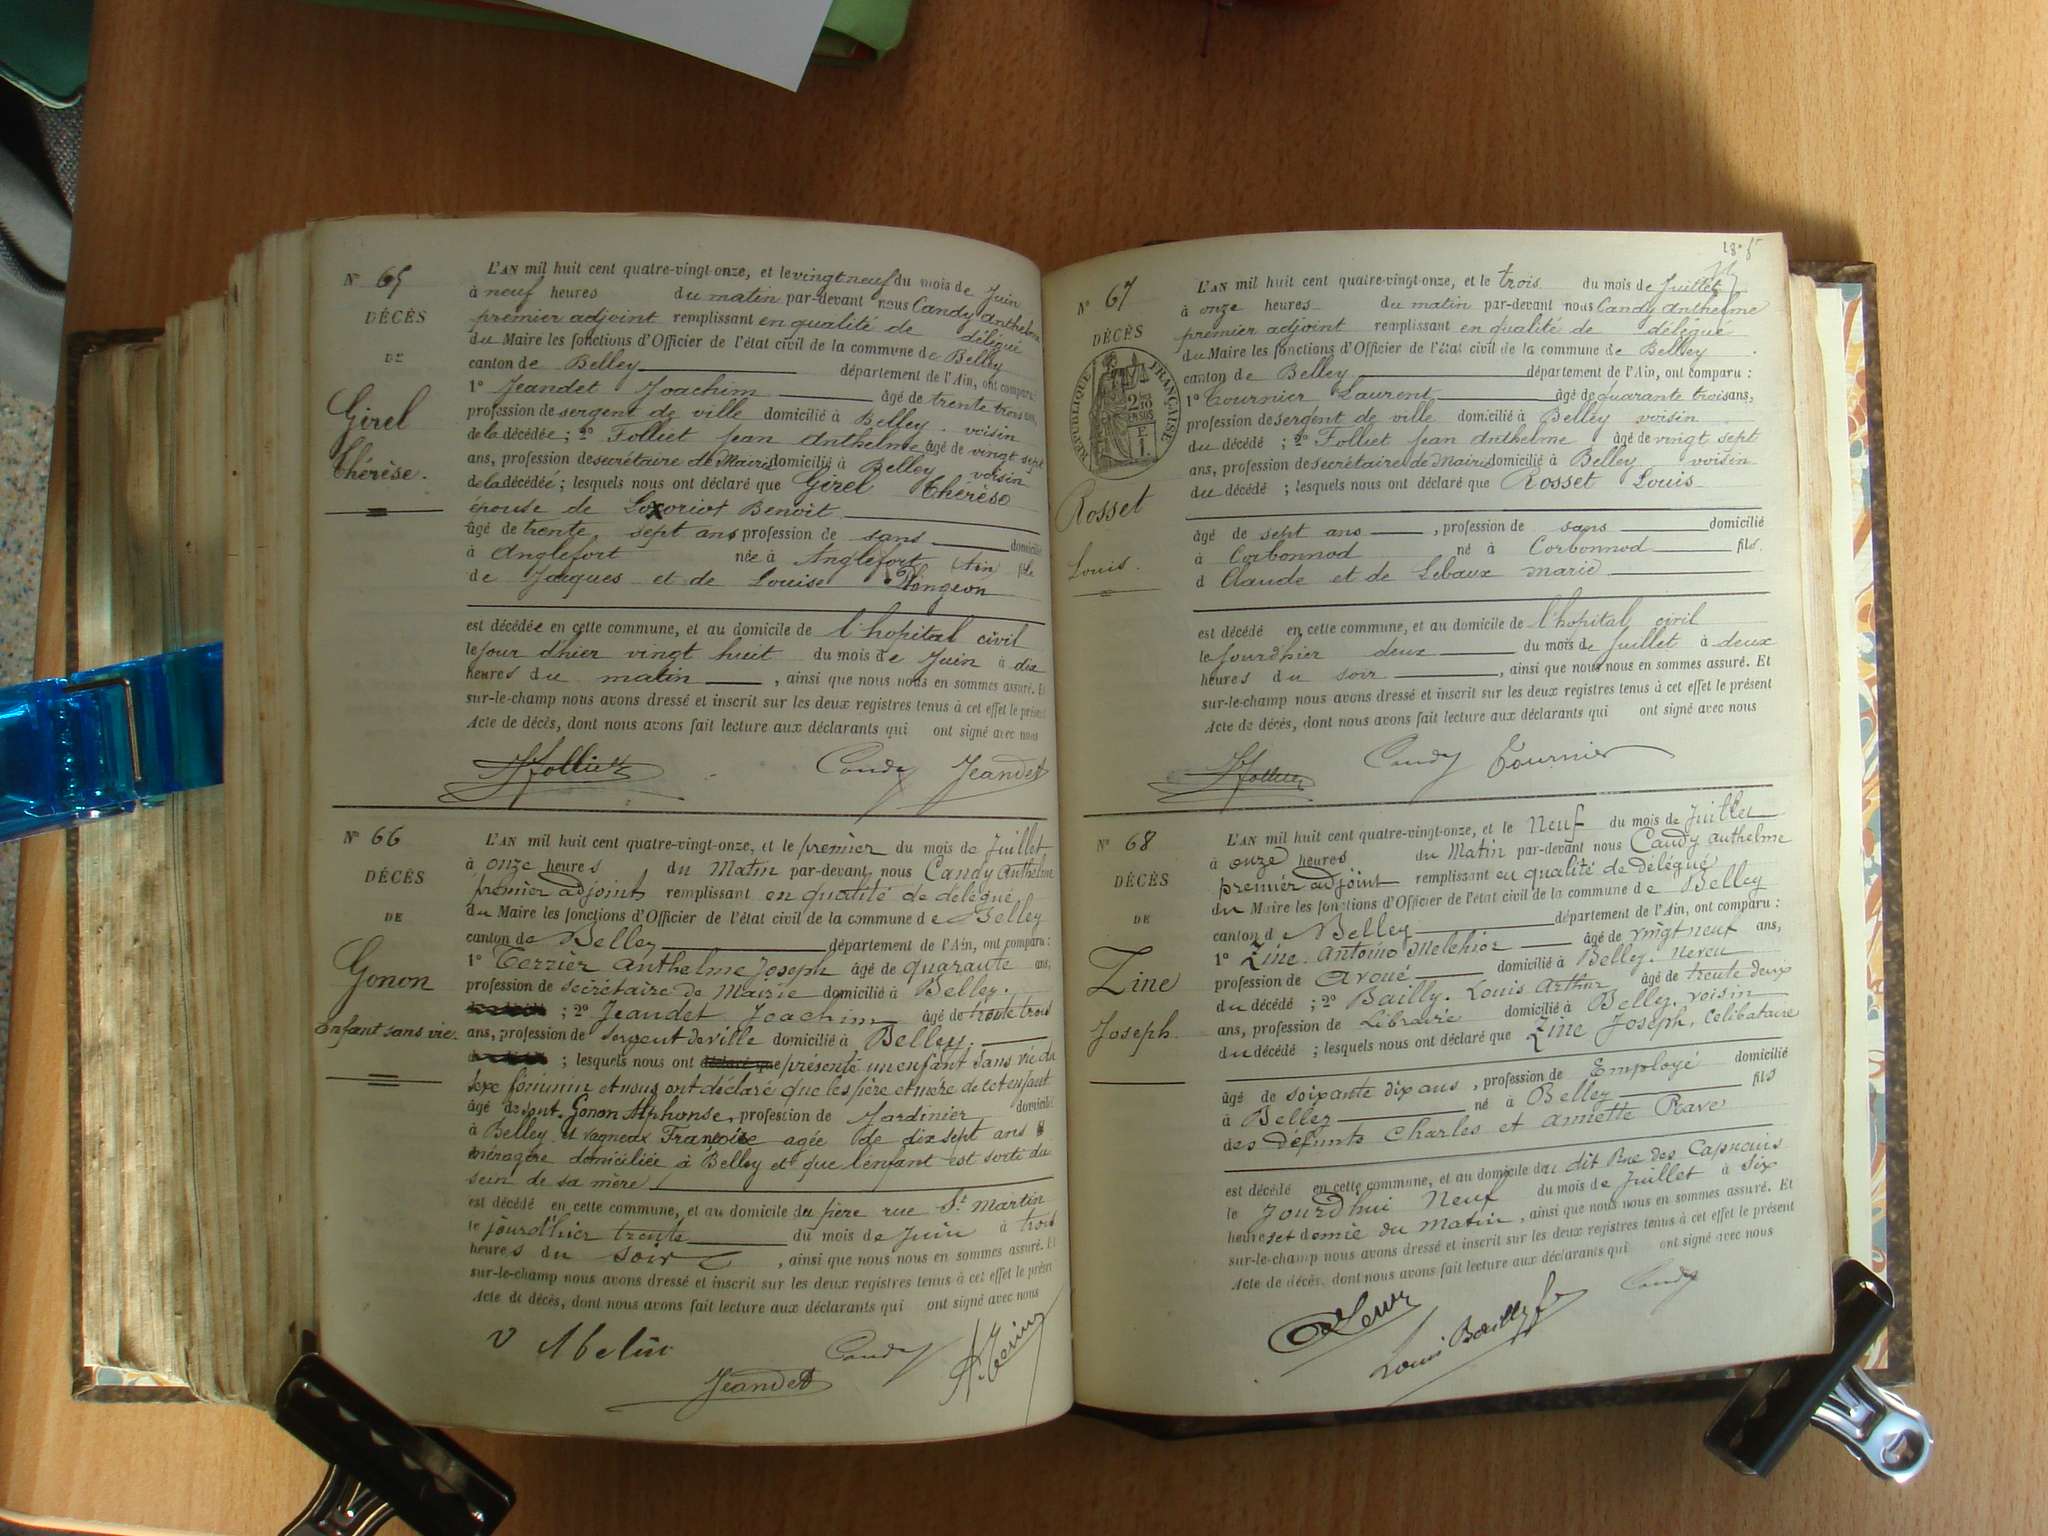 N° 65
DÉCÈS
DE
Girel
Thérèse.
L'AN mil huit cent quatre-vingt-onze, et le vingt neuf du mois de Juin
à neuf heures du matin par-devant nous Candy Anthelme
premier adjoint remplissant en qualité de délégué
du Maire les fonctions d'Officier de l'état civil de la commune de Belley
canton de Belley département de l'Ain, ont comparu :
1° Jeandet Joachim âgé de trente trois ans,
profession de sergent de ville domicilié à Belley . voisin
de la décédée ; 2° Folliet Jean Anthelme âgé de vingt sept
ans, profession de secrétaire de Mairie domicilié à Belley voisin
de la décédée ; lesquels nous ont déclaré que Girel Thérèse
épouse de Benoit
âgé de trente sept ans profession de sans domicilié
à Anglefort née à Anglefort (Ain) fille
de Jacques et de Louise
est décédée en cette commune, et au domicile de l'hopital civil
le jour d'hier vingt huit du mois de Juin à dix
heures du matin , ainsi que nous nous en sommes assuré. Et
sur-le-champ nous avons dressé et inscrit sur les deux registres tenus à cet effet le présent
Acte de décès, dont nous avons fait lecture aux déclarants qui ont signé avec nous
JFolliet Candy Jeandet
N° 66
DÉCÈS
DE
Gonon
enfant sans vie.
L'AN mil huit cent quatre-vingt-onze, et le premier du mois de Juillet
à onze heures du Matin par-devant nous Candy Anthelme
premier adjoint remplissant en qualité de délégué
du Maire les fonctions d'Officier de l'état civil de la commune de Belley
canton de Belley département de l'Ain, ont comparu :
1° Terrier Anthelme Joseph âgé de quarante ans,
profession de secrétaire de Mairie domicilié à Belley.
; 2° Jeandet Joachim âgé de trente trois
ans, profession de Sergent de ville domicilié à Belley.
; lesquels nous ont déclaré que présenté un enfant sans vie du
sexe féminin et nous ont déclaré que les père et mère de cet enfant
âgé de sont. Gonon Alphonse, profession de Jardinier domicilié
à Belley et Vagneux Françoise agée de dix sept ans
ménagère domiciliée à Belley et que l'enfant est sorti du
sein de sa mère
est décédé en cette commune, et au domicile du père rue St Martin
le jourd'hier trente du mois de Juin à trois
heures du soir , ainsi que nous nous en sommes assuré. Et
sur-le-champ nous avons dressé et inscrit sur les deux registres tenus à cet effet le présent
Acte de décès, dont nous avons fait lecture aux déclarants qui ont signé avec nous
Jeandet Candy
N° 67
DÉCÈS
RÉPUBLIQUE FRANÇAISE
Rosset
Louis.
L'AN mil huit cent quatre-vingt-onze, et le trois du mois de Juillet
à onze heures du matin par-devant nous Candy Anthelme
premier adjoint remplissant en qualité de délégué
du Maire les fonctions d'Officier de l'état civil de la commune de Belley
canton de Belley département de l'Ain, ont comparu :
1° Tournier Laurent âgé de quarante trois ans,
profession de sergent de ville domicilié à Belley voisin
du décédé ; 2° Folliet Jean Anthelme âgé de vingt sept
ans, profession de secrétaire de Mairie domicilié à Belley voisin
du décédé ; lesquels nous ont déclaré que Rosset Louis
âgé de sept ans , profession de sans domicilié
à Corbonnod né à Corbonnod fils
d Claude et de Lebaux Marie
est décédé en cette commune, et au domicile de l'hopital civil
le jourd'hier deux du mois de Juillet à deux
heures du soir , ainsi que nous nous en sommes assuré. Et
sur-le-champ nous avons dressé et inscrit sur les deux registres tenus à cet effet le présent
Acte de décès, dont nous avons fait lecture aux déclarants qui ont signé avec nous
JFolliet Candy Tournier
N° 68
DÉCÈS
DE
Zine
Joseph.
L'AN mil huit cent quatre-vingt-onze, et le Neuf du mois de Juillet
à onze heures du Matin par-devant nous Candy Anthelme
premier adjoint remplissant en qualité de délégué
du Maire les fonctions d'Officier de l'état civil de la commune de Belley
canton de Belley département de l'Ain, ont comparu :
1° Zine. Antoine Melchior âgé de vingt neuf ans,
profession de Avoué domicilié à Belley. neveu
du décédé ; 2° Bailly. Louis Arthur âgé de trente deux
ans, profession de Libraire domicilié à Belley. voisin
du décédé ; lesquels nous ont déclaré que Zine Joseph, Célibataire
âgé de soixante dix ans , profession de Employé domicilié
à Belley né à Belley fils
des défunts Charles et Annette Rave
est décédé en cette commune, et au domicile du dit Rue des Capucins
le Jourd'hui Neuf du mois de Juillet à Six
heures et demie du Matin , ainsi que nous nous en sommes assuré. Et
sur-le-champ nous avons dressé et inscrit sur les deux registres tenus à cet effet le présent
Acte de décès, dont nous avons fait lecture aux déclarants qui ont signé avec nous
Louis Bailly Candy